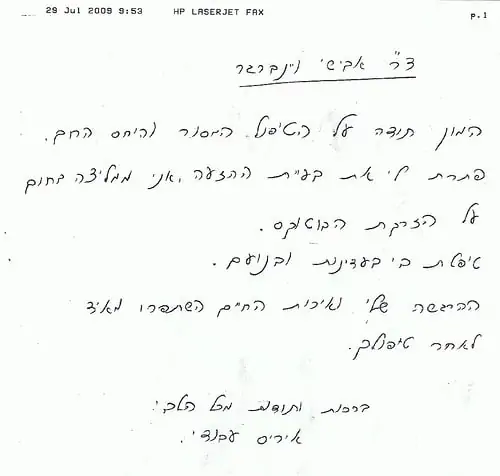 29 Jul 2009 9:53 HP LASERJET FAX p.1
ד"ר אבישי ויינברגר
המון תודה על הטיפול המסור והיחס החם.
פתרת לי את בעיית ההזעה, אני ממליצה בחום
על הזרקת הבוטוקס.
טיפלת בי בעדינות ובנועם.
ההרגשה שלי ואיכות החיים השתפרו מאוד
לאחר טיפולך.
ברכות ותודות מכל הלב!
איריס עבודי.